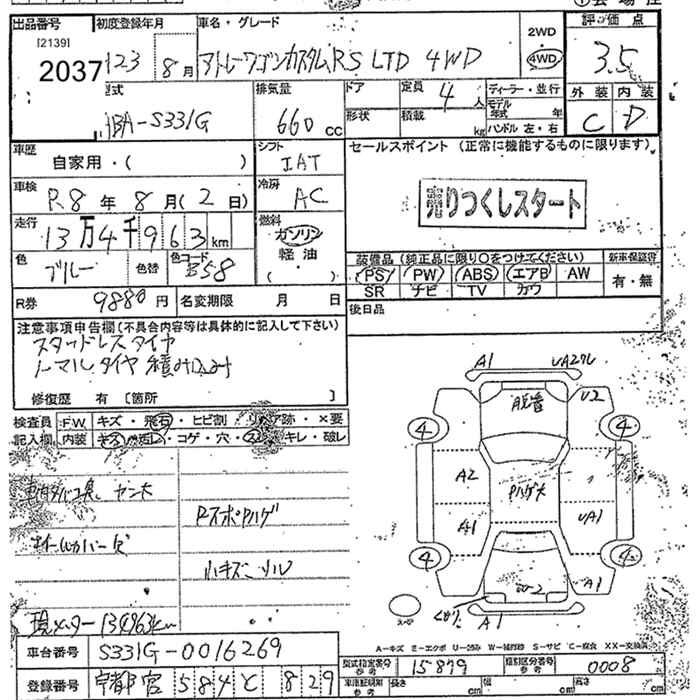 出品番号 初度登録年月 車名・グレード 2WD 評価点
[2139] 2037 H23 8月 アトレーワゴンカスタムRS LTD 4WD 4WD 3.5
型式 排気量 ドア 定員 4人 ディーラー・並行 外装 内装
ABA-S331G 660cc 形状 積載 kg モデル年式 年 ハンドル 左・右 C D
車歴 自家用・( ) シフト IAT セールスポイント (正常に機能するものに限ります)
車検 R8年8月(2日) 冷房 AC 売りつくしスタート
走行 13万4千963km 燃料 ガソリン 軽油 ( ・ )
色 ブルー 色替 色コード B58 装備品 (純正品に限り○をつけてください) 新車保証書
PS PW ABS エアB AW 有・無
SR ナビ TV カワ
R券 9880円 名変期限 月 日 後日品
注意事項申告欄(不具合内容等は具体的に記入して下さい)
スタッドレスタイヤ
ノーマルタイヤ積み込み
修復歴 有 [箇所 ]
検査員 FW キズ・飛石・ヒビ割 リペア跡・×要
記入欄 内装 キズ・汚レ・コゲ・穴・スレ・キレ・破レ
A1
U2
4 4
A2
A1
4 4
A1
A1
ホイールカバーキズ
小キズ
現メーター134963km
スペア
A-キズ E-エクボ U-凹み W-補修跡 S-サビ C-腐食 XX-交換済
車台番号 S331G-0016269
型式指定番号 参考 15879 類別区分番号 参考 0008
登録番号 宇都宮 584 と 829
車庫証明用 参考 長さ cm 幅 cm 高さ cm